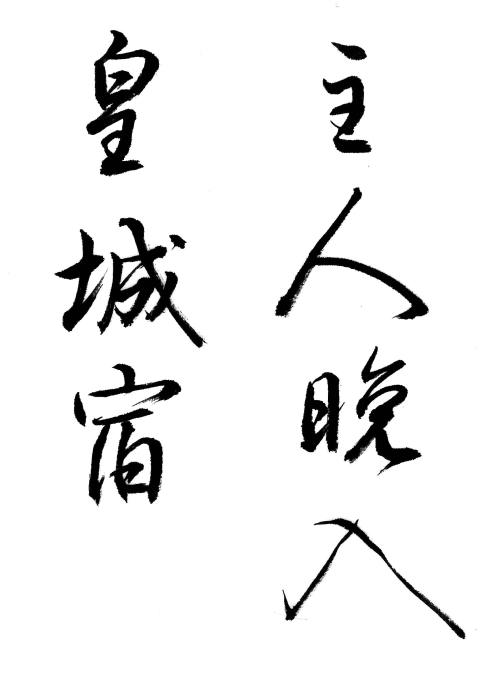 主人晚入
皇城宿